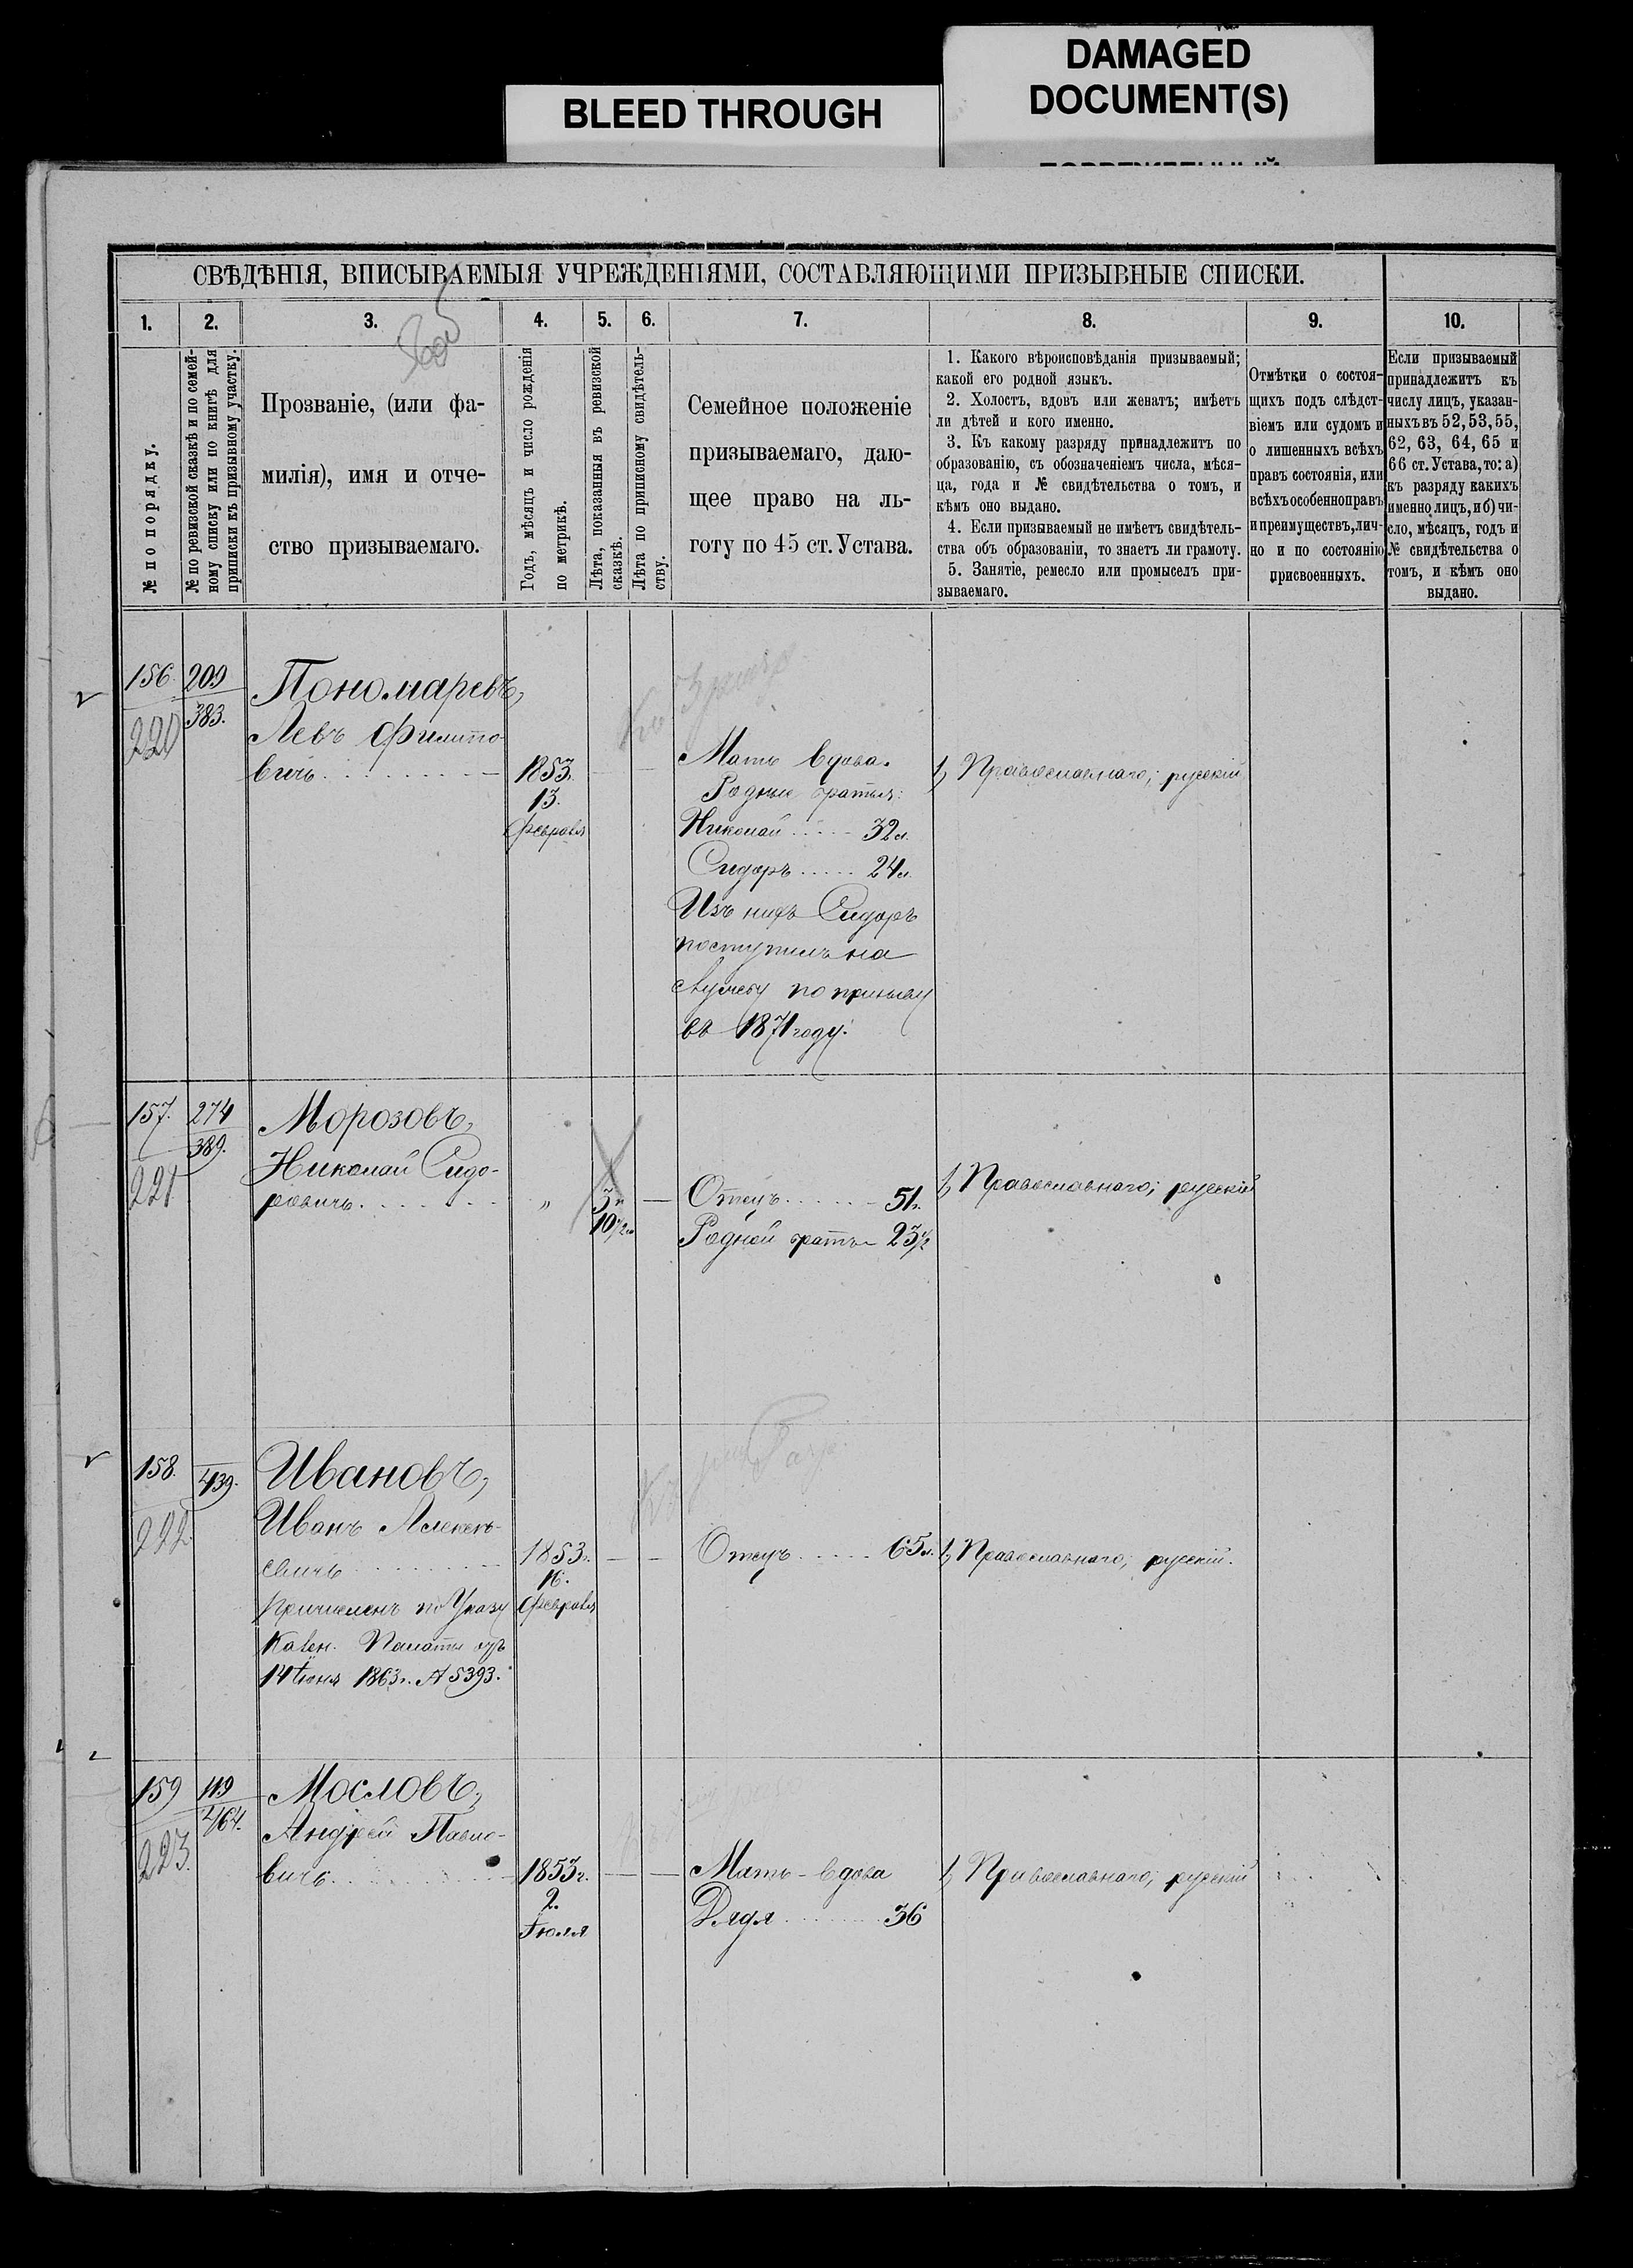 BLEED THROUGH
DAMAGED
DOCUMENT(S)
СВѢДѢНІЯ, ВПИСЫВАЕМЫЯ УЧРЕЖДЕНІЯМИ, СОСТАВЛЯЮЩИМИ ПРИЗЫВНЫЕ СПИСКИ.
1. 2. 3. 4. 5. 6. 7. 8. 9. 10.
№ по порядку.
№ по ревизской сказкѣ и по семей-
ному списку или по книгѣ для
приписки къ призывному участку.
Прозваніе, (или фа-
милія), имя и отче-
ство призываемаго.
Годъ, мѣсяцъ и число рожденія
по метрикѣ.
Лѣта, показанныя въ ревизской
сказкѣ.
Лѣта по приписному свидѣтель-
ству.
Семейное положеніе
призываемаго, даю-
щее право на ль-
готу по 45 ст. Устава.
1. Какого вѣроисповѣданія призываемый;
какой его родной языкъ.
2. Холостъ, вдовъ или женатъ; имѣетъ
ли дѣтей и кого именно.
3. Къ какому разряду принадлежитъ по
образованію, съ обозначеніемъ числа, мѣся-
ца, года и № свидѣтельства о томъ, и
кѣмъ оно выдано.
4. Если призываемый не имѣетъ свидѣтель-
ства объ образованіи, то знаетъ ли грамоту.
5. Занятіе, ремесло или промыселъ при-
зываемаго.
Отмѣтки о состоя-
щихъ подъ слѣдст-
віемъ или судомъ и
о лишенныхъ всѣхъ
правъ состоянія, или
всѣхъ особенно правъ
и преимуществъ, лич-
но и по состоянію
присвоенныхъ.
Если призываемый
принадлежитъ къ
числу лицъ, указан-
ныхъ въ 52, 53, 55,
62, 63, 64, 65 и
66 ст. Устава, то: а)
къ разряду какихъ
именно лицъ, и б) чи-
сло, мѣсяцъ, годъ и
№ свидѣтельства о
томъ, и кѣмъ оно
выдано.
156. 209 Пономаревъ,
383.
220 Левъ Филиппо-
вичъ 1853. Мать вдова. 1, Православнаго; русскій
13. Родные братья:
Февраля Николай 32 л.
Сидоръ 24 л.
Изъ нихъ Сидоръ
поступилъ на
службу по призыву
въ 1871 году.
157. 274 Морозовъ,
389.
221 Николай Сидо-
ровичъ " 3 Отецъ 51 л. 1, Православнаго; русскій
10/2 Родной братъ 23½
158. 439. Ивановъ,
222 Иванъ Алексѣ-
евичъ 1853 г. Отецъ 65 л. 1, Православнаго; русскій.
16.
Причисленъ по Указу Февраля
Казен. Палаты отъ
14 Іюня 1863 г. № 5393.
159 119 Мословъ,
464.
223. Андрей Павло-
вичъ 1853 г. Мать - вдова 1, Православнаго; русскій
2. Дядя 36
Іюля